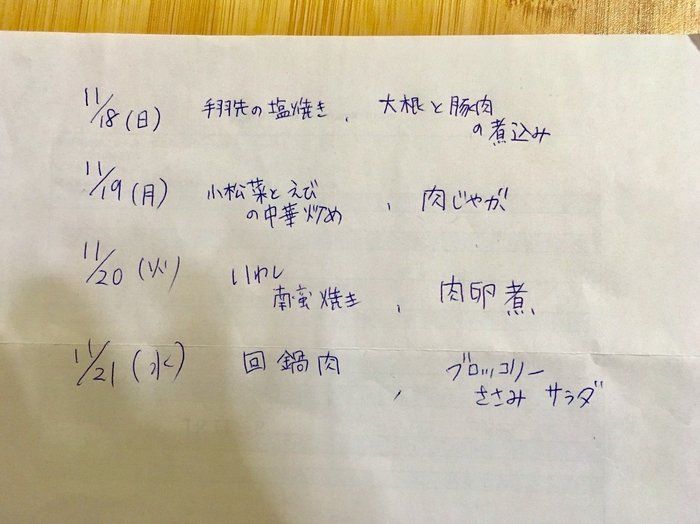 11/18(日) 手羽先の塩焼き、大根と豚肉
の煮込み
11/19(月) 小松菜とえび
の中華炒め、肉じゃが
11/20(火) いわし
南蛮焼き、肉卵煮
11/21(水) 回鍋肉、ブロッコリー
ささみ サラダ